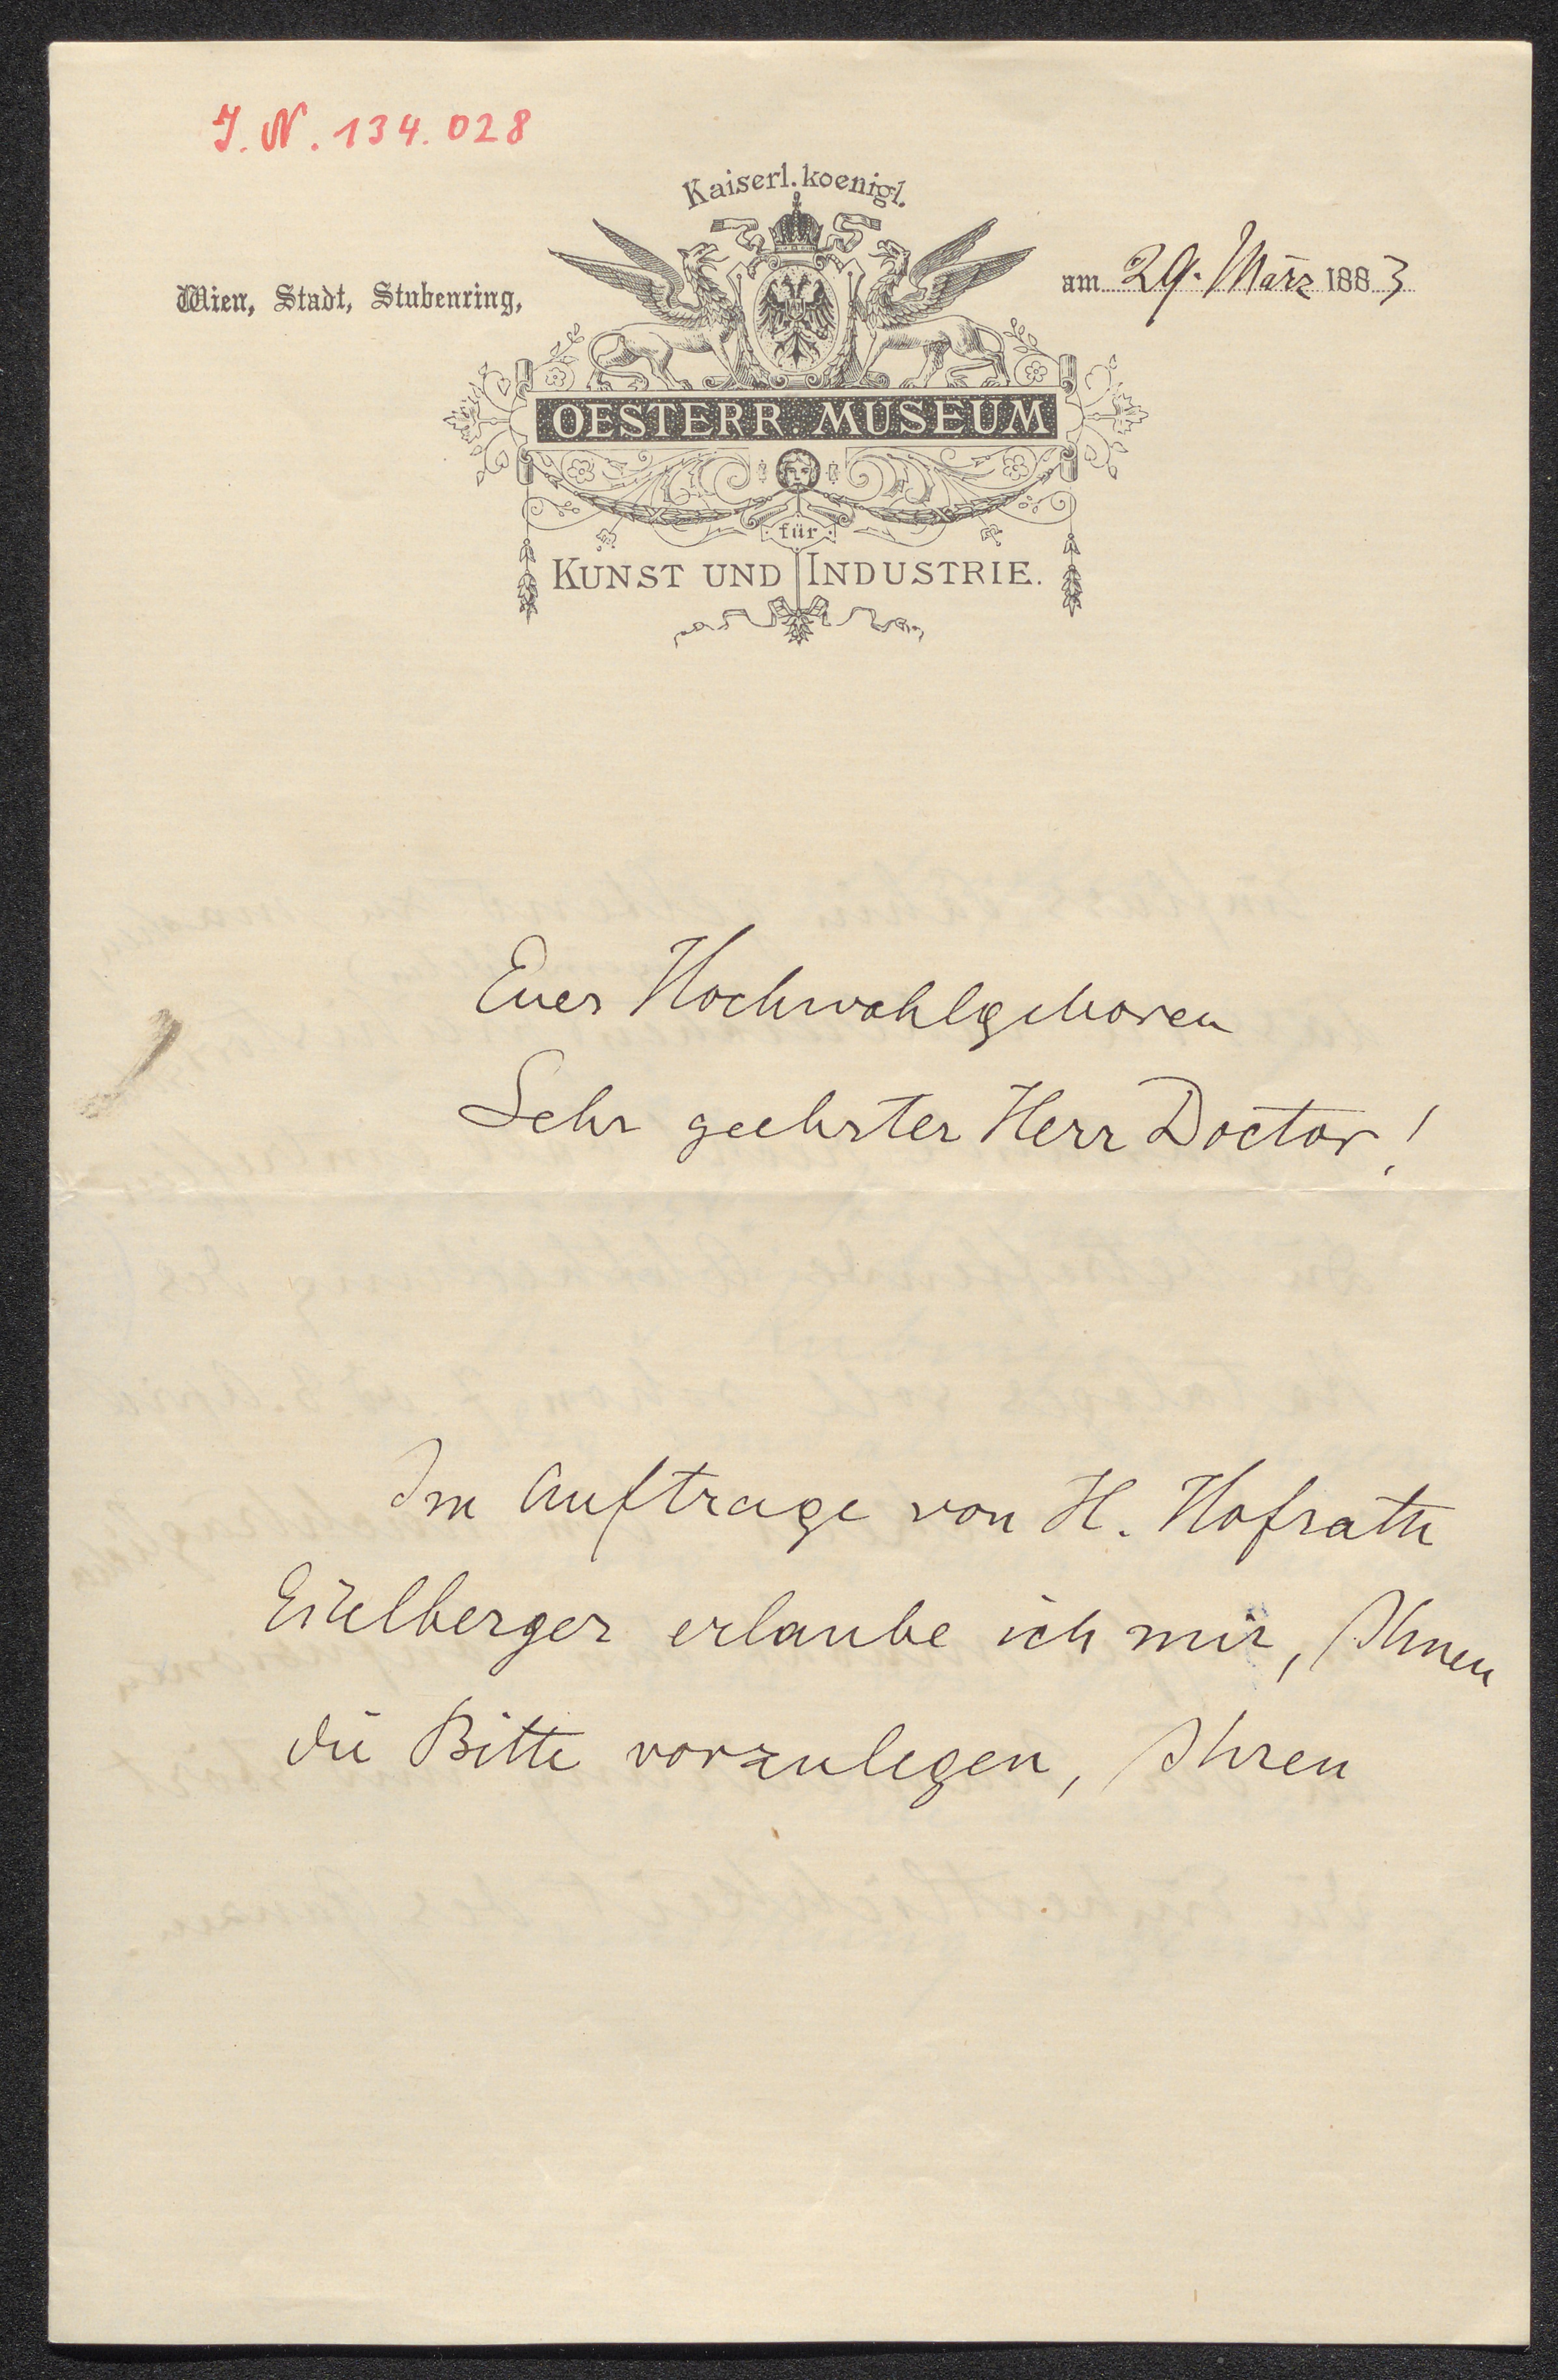 J. N. 134.028
Kaiserl. koenigl.
Wien, Stadt, Stubenring,
am 29. März 1883
OESTERR. MUSEUM
für
KUNST UND INDUSTRIE.
Euer Hochwohlgeboren
Sehr geehrter Herr Doctor!
Im Auftrage von H. Hofrath
Eitelberger erlaube ich mir, Ihnen
die Bitte vorzulegen, Ihren